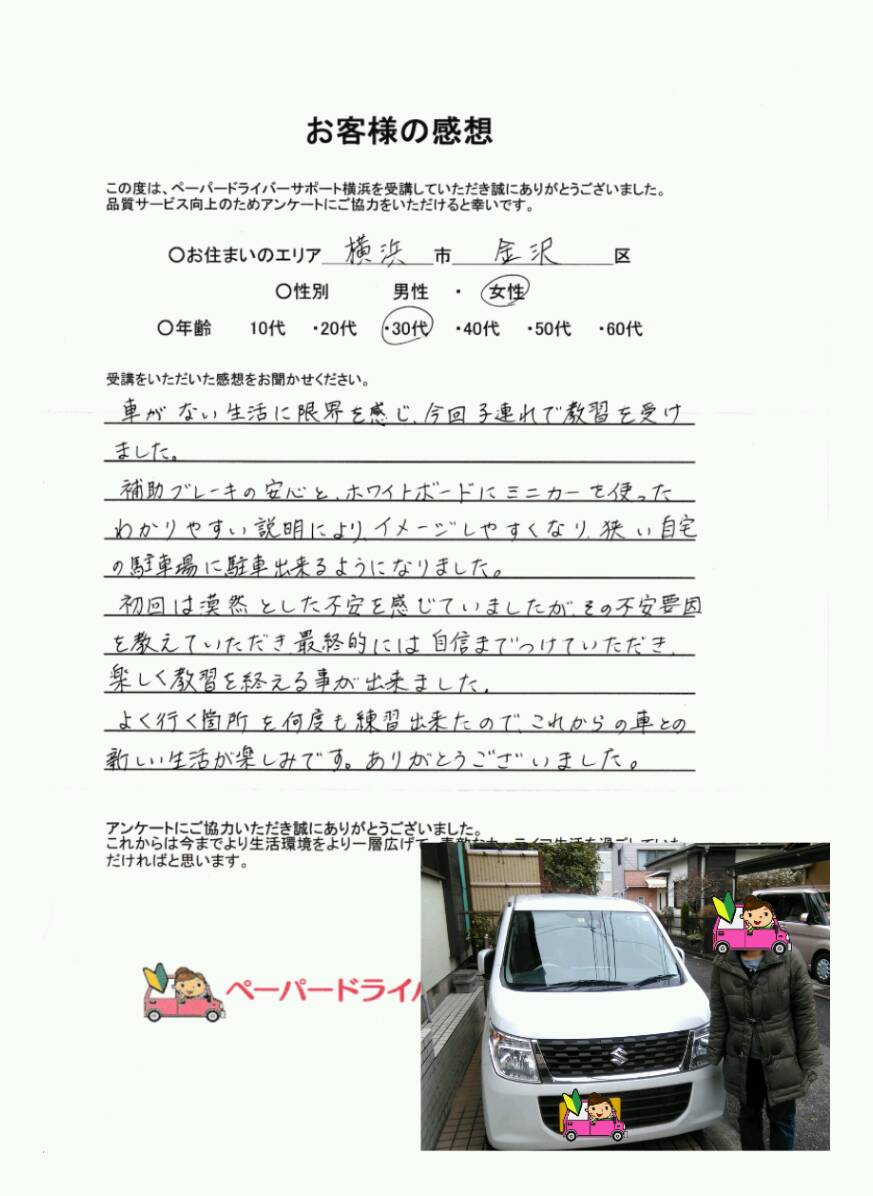 お客様の感想
この度は、ペーパードライバーサポート横浜を受講していただき誠にありがとうございました。
品質サービス向上のためアンケートにご協力をいただけると幸いです。
〇お住まいのエリア 横浜 市 金沢 区
〇性別 男性 ・ 女性
〇年齢 10代 ・20代 ・30代 ・40代 ・50代 ・60代
受講をいただいた感想をお聞かせください。
車がない生活に限界を感じ、今回子連れで教習を受け
ました。
補助ブレーキの安心と、ホワイトボードにミニカーを使った
わかりやすい説明により、イメージしやすくなり、狭い自宅
の駐車場に駐車出来るようになりました。
初回は漠然とした不安を感じていましたが、その不安要因
を教えていただき、最終的には自信までつけていただき、
楽しく教習を終える事が出来ました。
よく行く箇所を何度も練習出来たので、これからの車との
新しい生活が楽しみです。ありがとうございました。
アンケートにご協力いただき誠にありがとうございました。
これからは今までより生活環境をより一層広げて、
だければと思います。
ペーパードライ